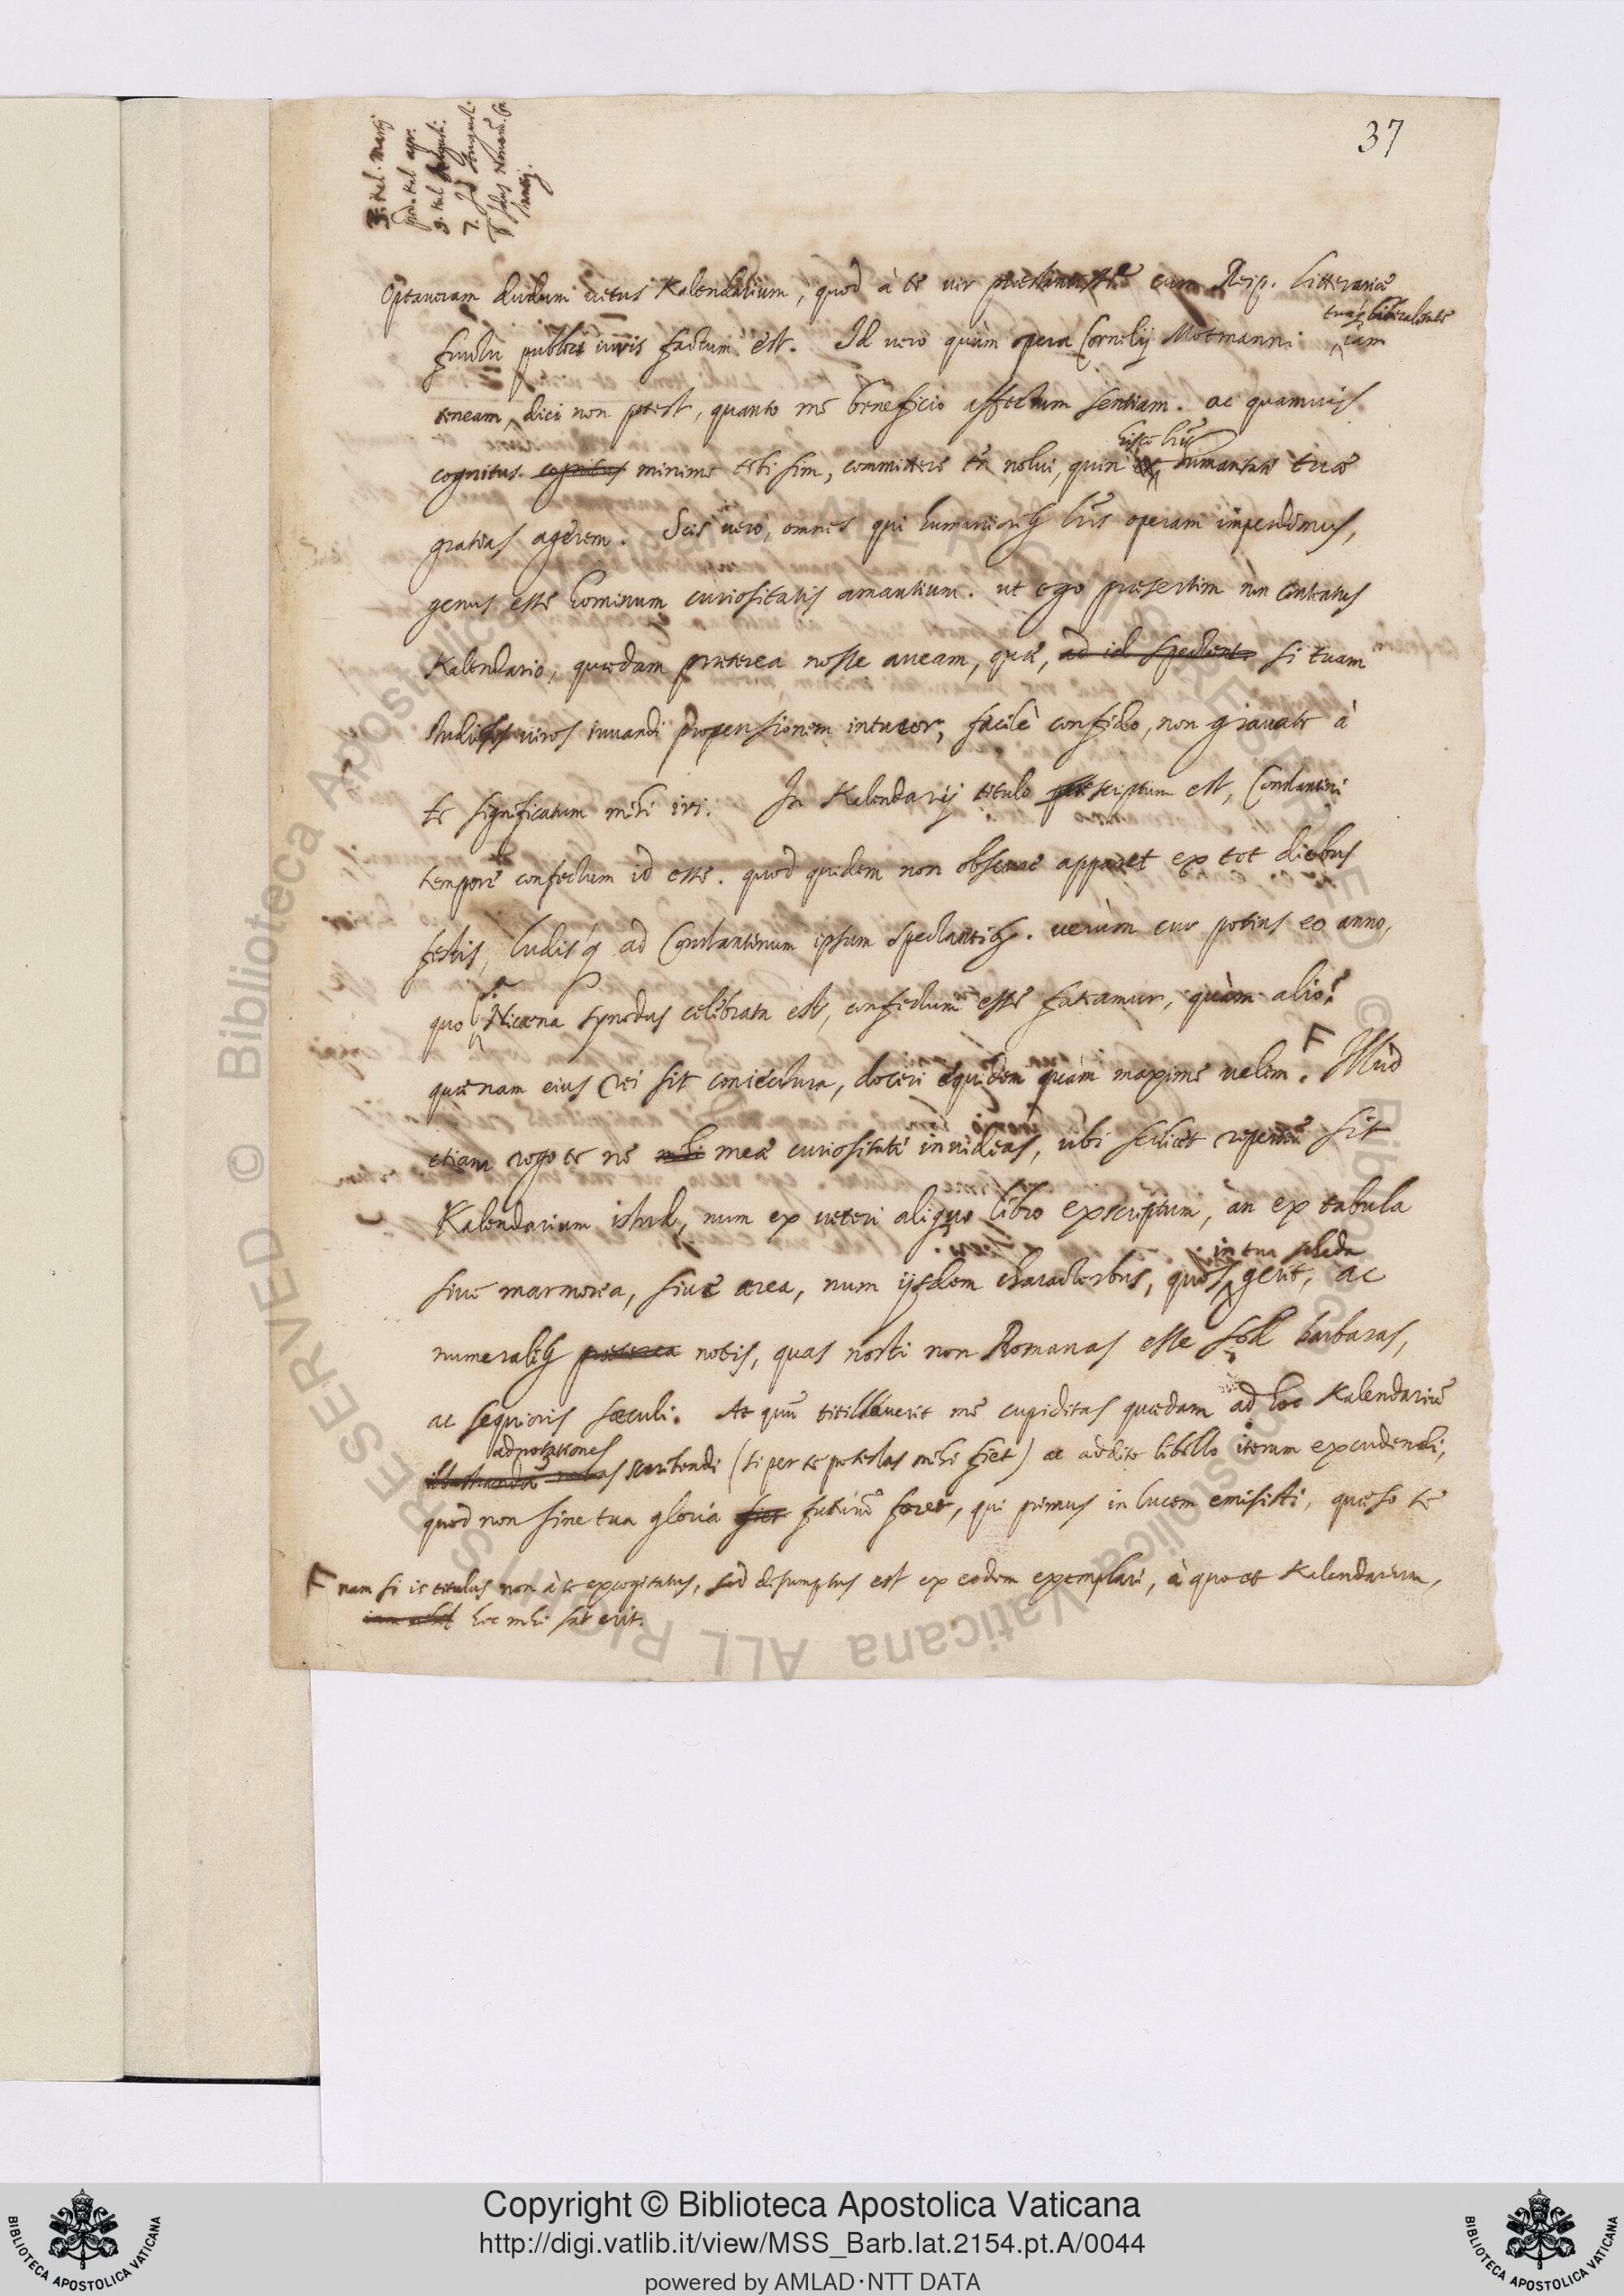 37
3. Kal. Martij
prid. Kal. apr.
9. Kal. Augusti.
7. Id August.
Optaueram dudum uetus Kalendarium, quod à te vir præstantissime cum Reip. litterariæ
tuaq liberalitate
fructu publici iuris factum est. Id vero quùm opera Cornelij Motmanni iam
teneam, dici non potest, quanto me beneficio affectum sentiam. ac quamuis
hisce
cognitus cognitus minime tibi sim, committere tñ nolui, quin humanitati tuæ
gratias agerem. Scis vero, omnes qui humaniorib lris operam impendimus,
genus esse hominum curiositatis amantium. ut ego præsertim non contentus
Kalendario, quædam præterea nosse aueam, quæ, ad id spectent si tuam
studiosos uiros iuuandi propensionem intueor, facilè confido, non grauatè à
te significatum mihi iri. In Kalendarij titulo scriptum est, Constantini
tempore confectum id esse. quod quidem non obscure apparet ex tot diebus
festis, ludisq ad Constantinum ipsum spectantib. uerùm cur potius eo anno,
quo Nicæna synodus celebrata est, confectum esse fateamur, quàm alio?
quænam eius rei sit coniectura, doceri equidem quàm maxime uelim. F Illud
etiam rogo te ne mihi meæ curiositati inuideas, ubi scilicet repertum sit
Kalendarium istud, num ex ueteri aliquo libro exscriptum, an ex tabula
in tua scheda
siue marmorea, siue ærea, num ijsdem characteribus, quos gerit, ac
numeralib præterea notis, quas nosti non Romanas esse sed barbaras,
ac sequioris sæculi. At quum titillauerit me cupiditas quædam ad hoc Kalendarium
adnotationes
scribendi (si per te potestas mihi fiet) ac addito libello iterum excudendi;
quod non sine tua gloria fiet futurum foret, qui primus in lucem emisisti, quæso te
F nam si is titulus non à te excogitatus, sed desumptus est ex eodem exemplari, à quo et Kalendarium,
hoc mihi sat erit.
© Biblioteca Apostolica Vaticana ALL RIGHTS RESERVED
Copyright © Biblioteca Apostolica Vaticana
http://digi.vatlib.it/view/MSS_Barb.lat.2154.pt.A/0044
powered by AMLAD·NTT DATA
BIBLIOTECA APOSTOLICA VATICANA
BIBLIOTECA APOSTOLICA VATICANA